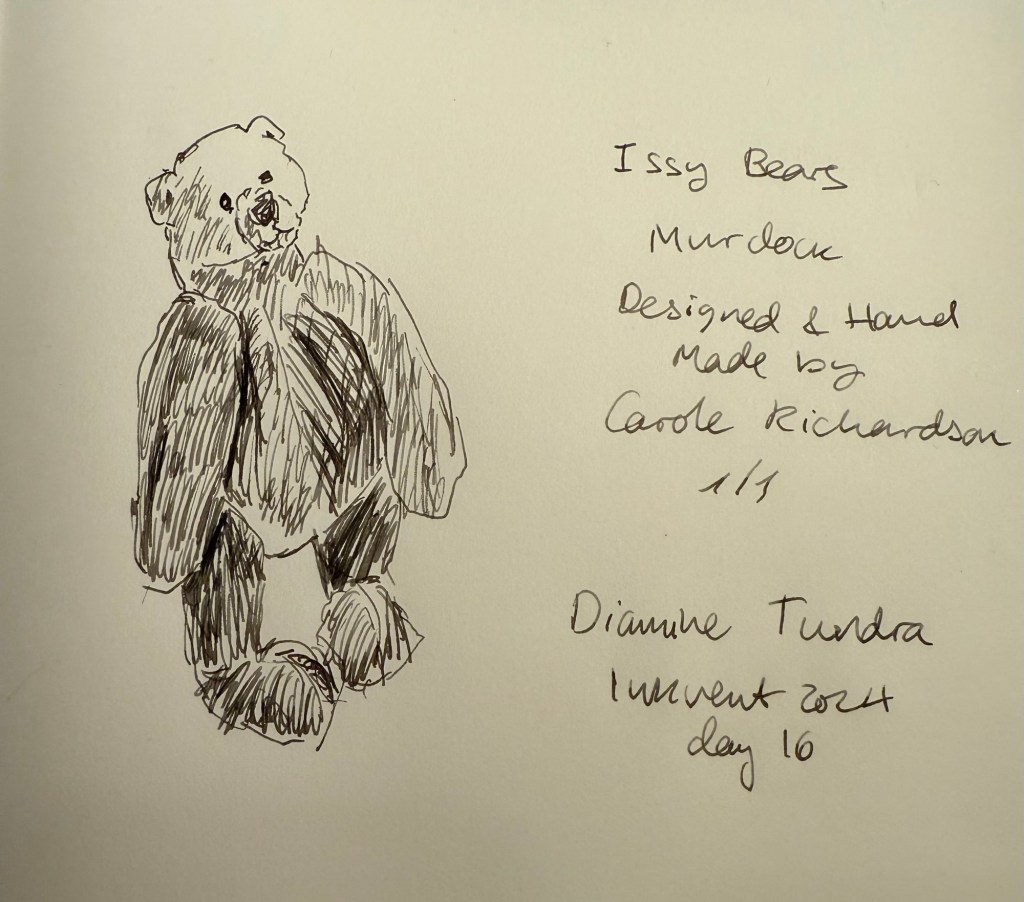 Issy Bears
Murdock
Designed & Hand
Made by
Carole Richardson
1/1
Diamine Tundra
Inkvent 2024
day 16